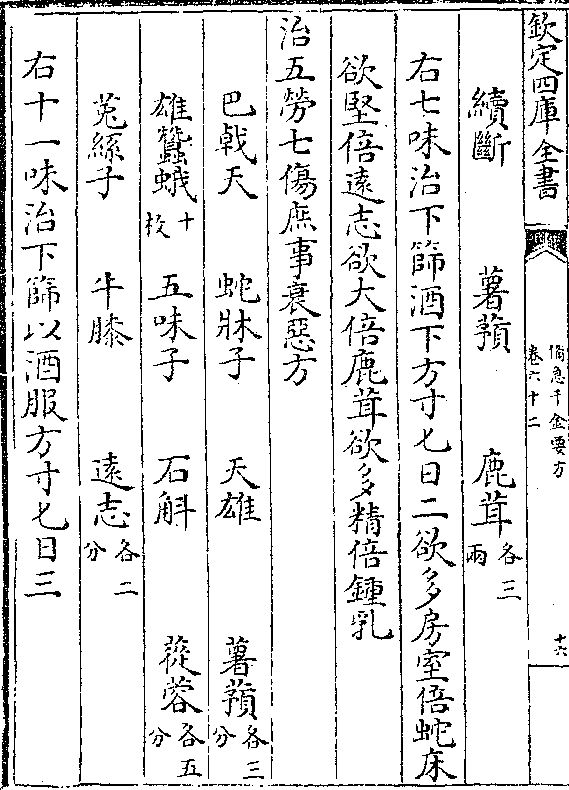 欽定四庫全書
備急千金要方
卷六十二
十六
續斷 薯蕷 鹿茸各三兩
右七味治下篩酒下方寸匕日二欲多房室倍蛇床
欲堅倍遠志欲大倍鹿茸欲多精倍鍾乳
治五勞七傷庶事衰惡方
巴戟天 蛇牀子 天雄 薯蕷各三分
雄蠶蛾十枚 五味子 石斛 蓯蓉各五分
菟絲子 牛膝 遠志各二分
右十一味治下篩以酒服方寸匕日三